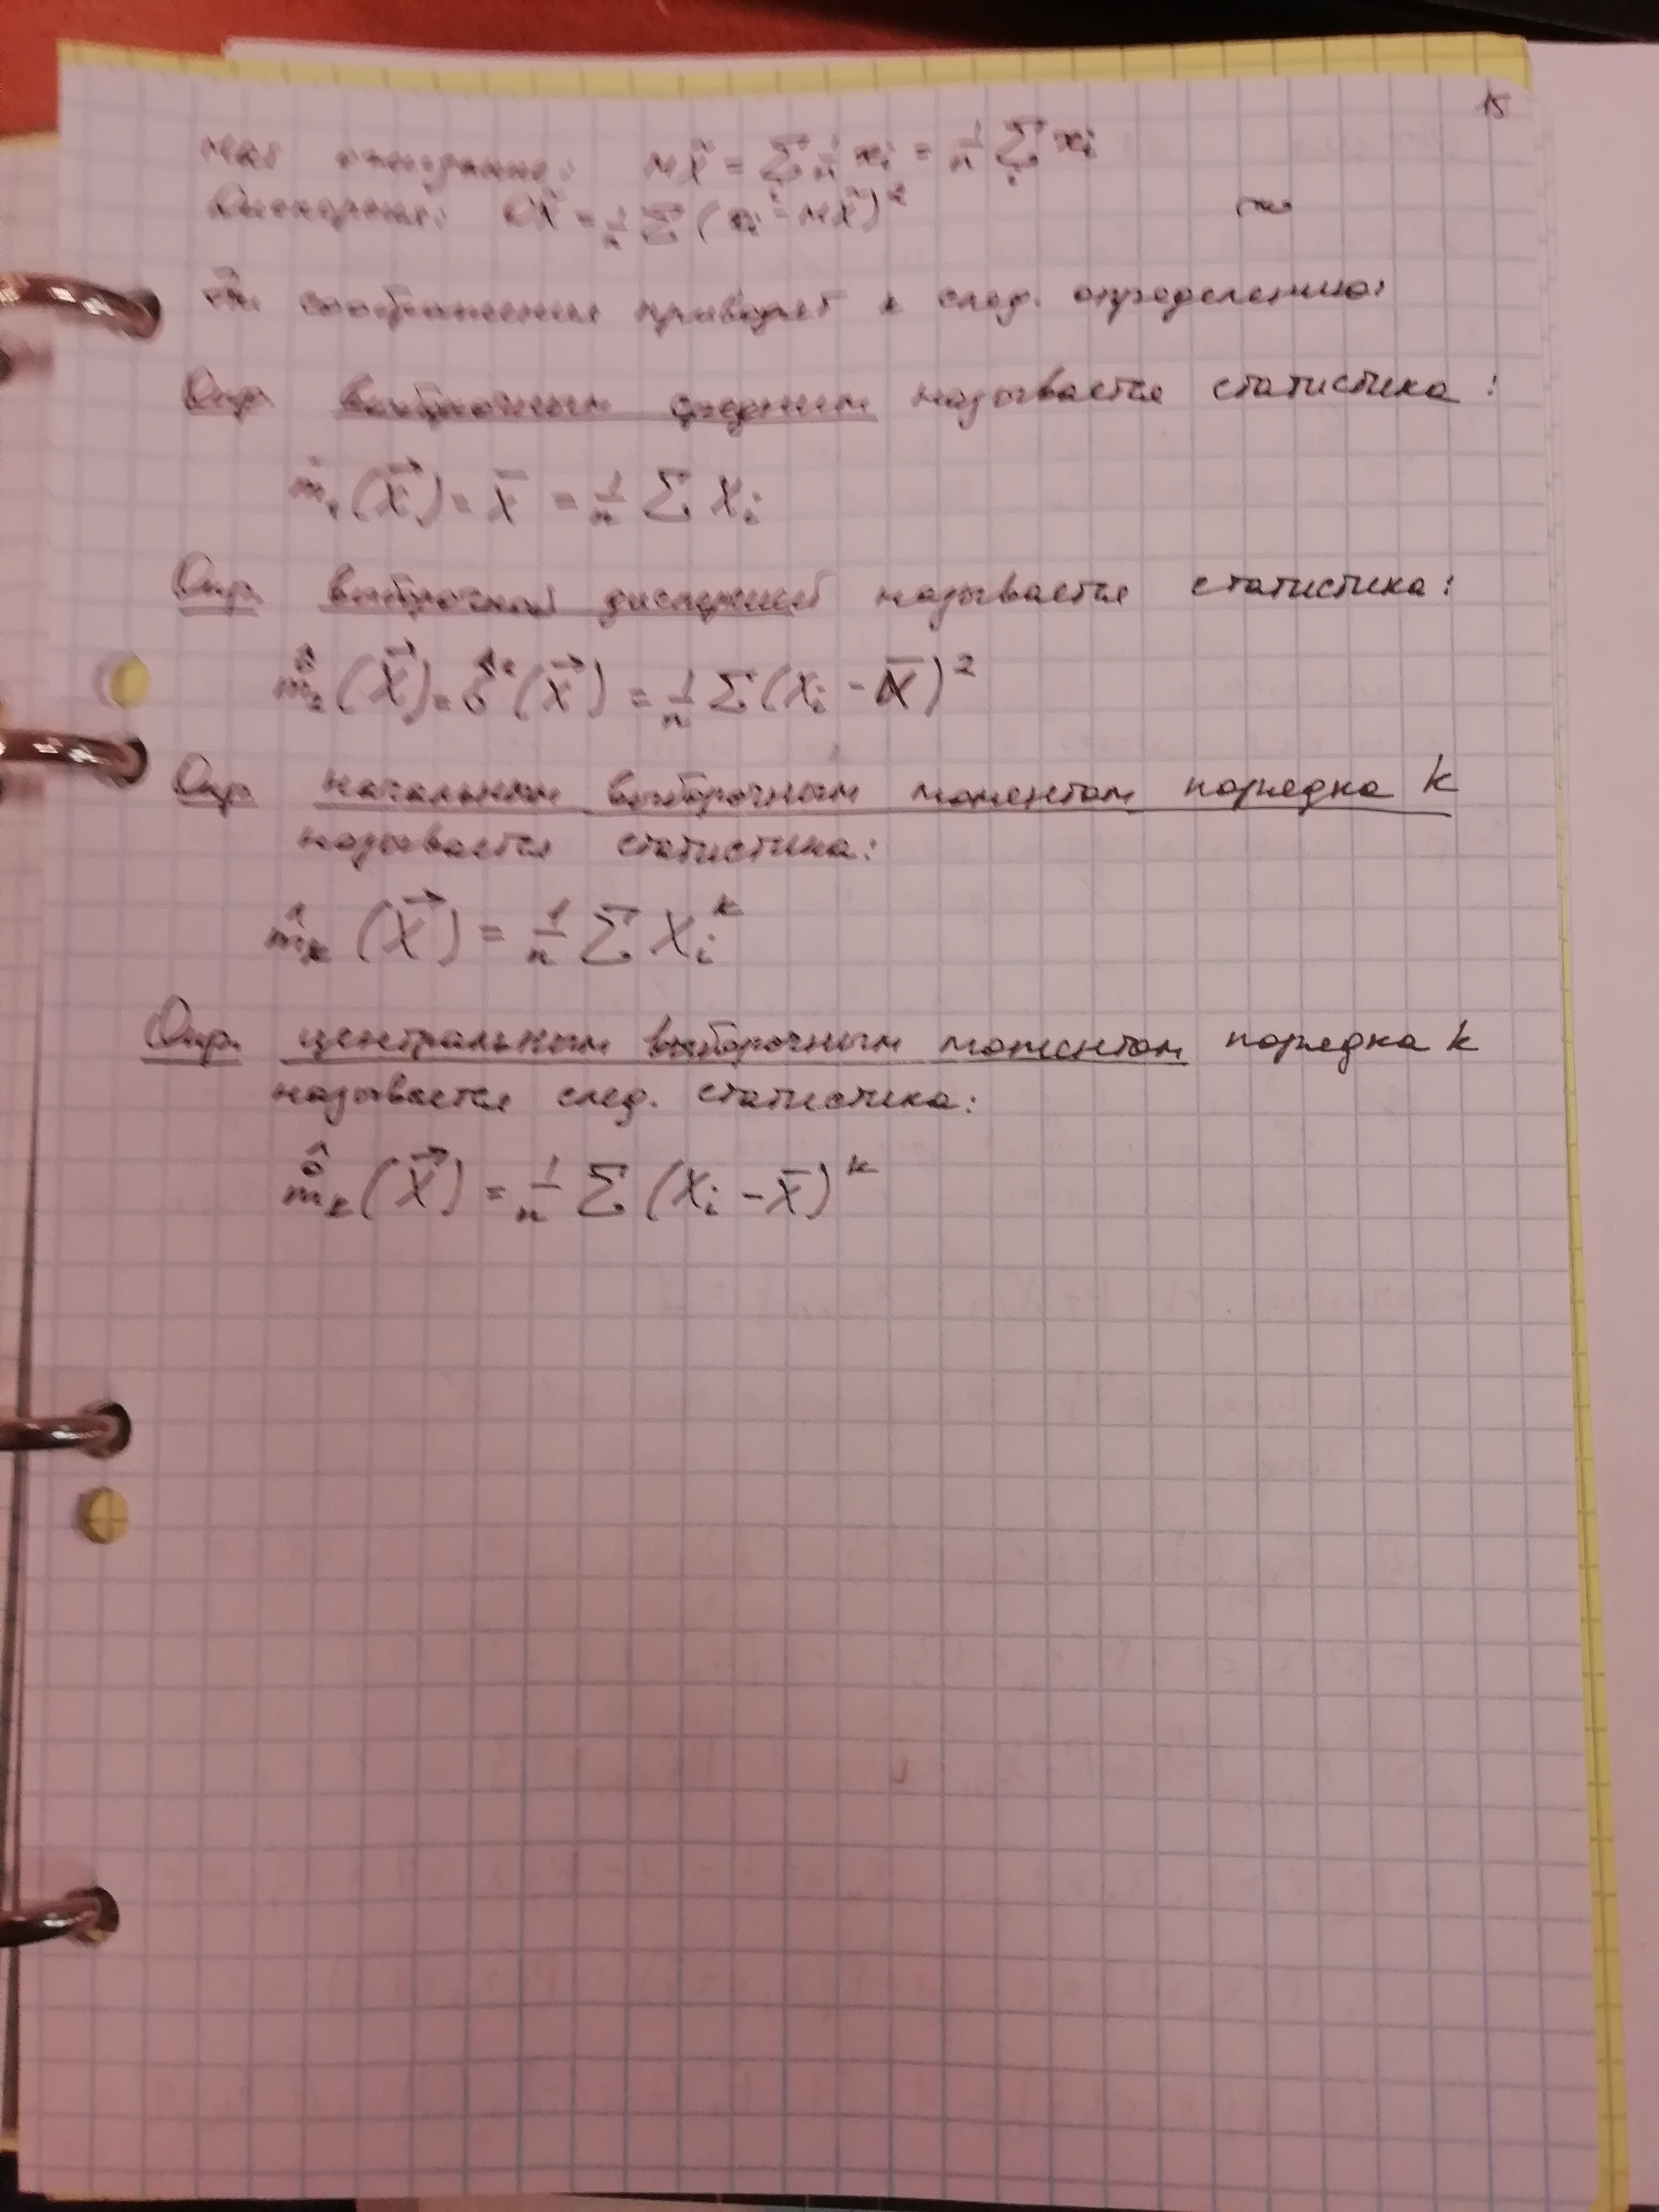 15
Мат ожидание: MX̃ = ∑ᵢ 1/n xᵢ = 1/n ∑ᵢ xᵢ
Дисперсия: DX̃ = 1/n ∑ (xᵢ - MX̃)²
Эти соображения приводят к след. определению:
Опр выборочным средним называется статистика:
m̂₁(X⃗) = X̅ = 1/n ∑ Xᵢ
Опр. выборочной дисперсией называется статистика:
m̊̂₂(X⃗) = σ̂²(X⃗) = 1/n ∑ (Xᵢ - X̅)²
Опр начальным выборочным моментом порядка k
называется статистика:
m̂ₖ(X⃗) = 1/n ∑ Xᵢᵏ
Опр. центральным выборочным моментом порядка k
называется след. статистика:
m̊̂ₖ(X⃗) = 1/n ∑ (Xᵢ - X̅)ᵏ